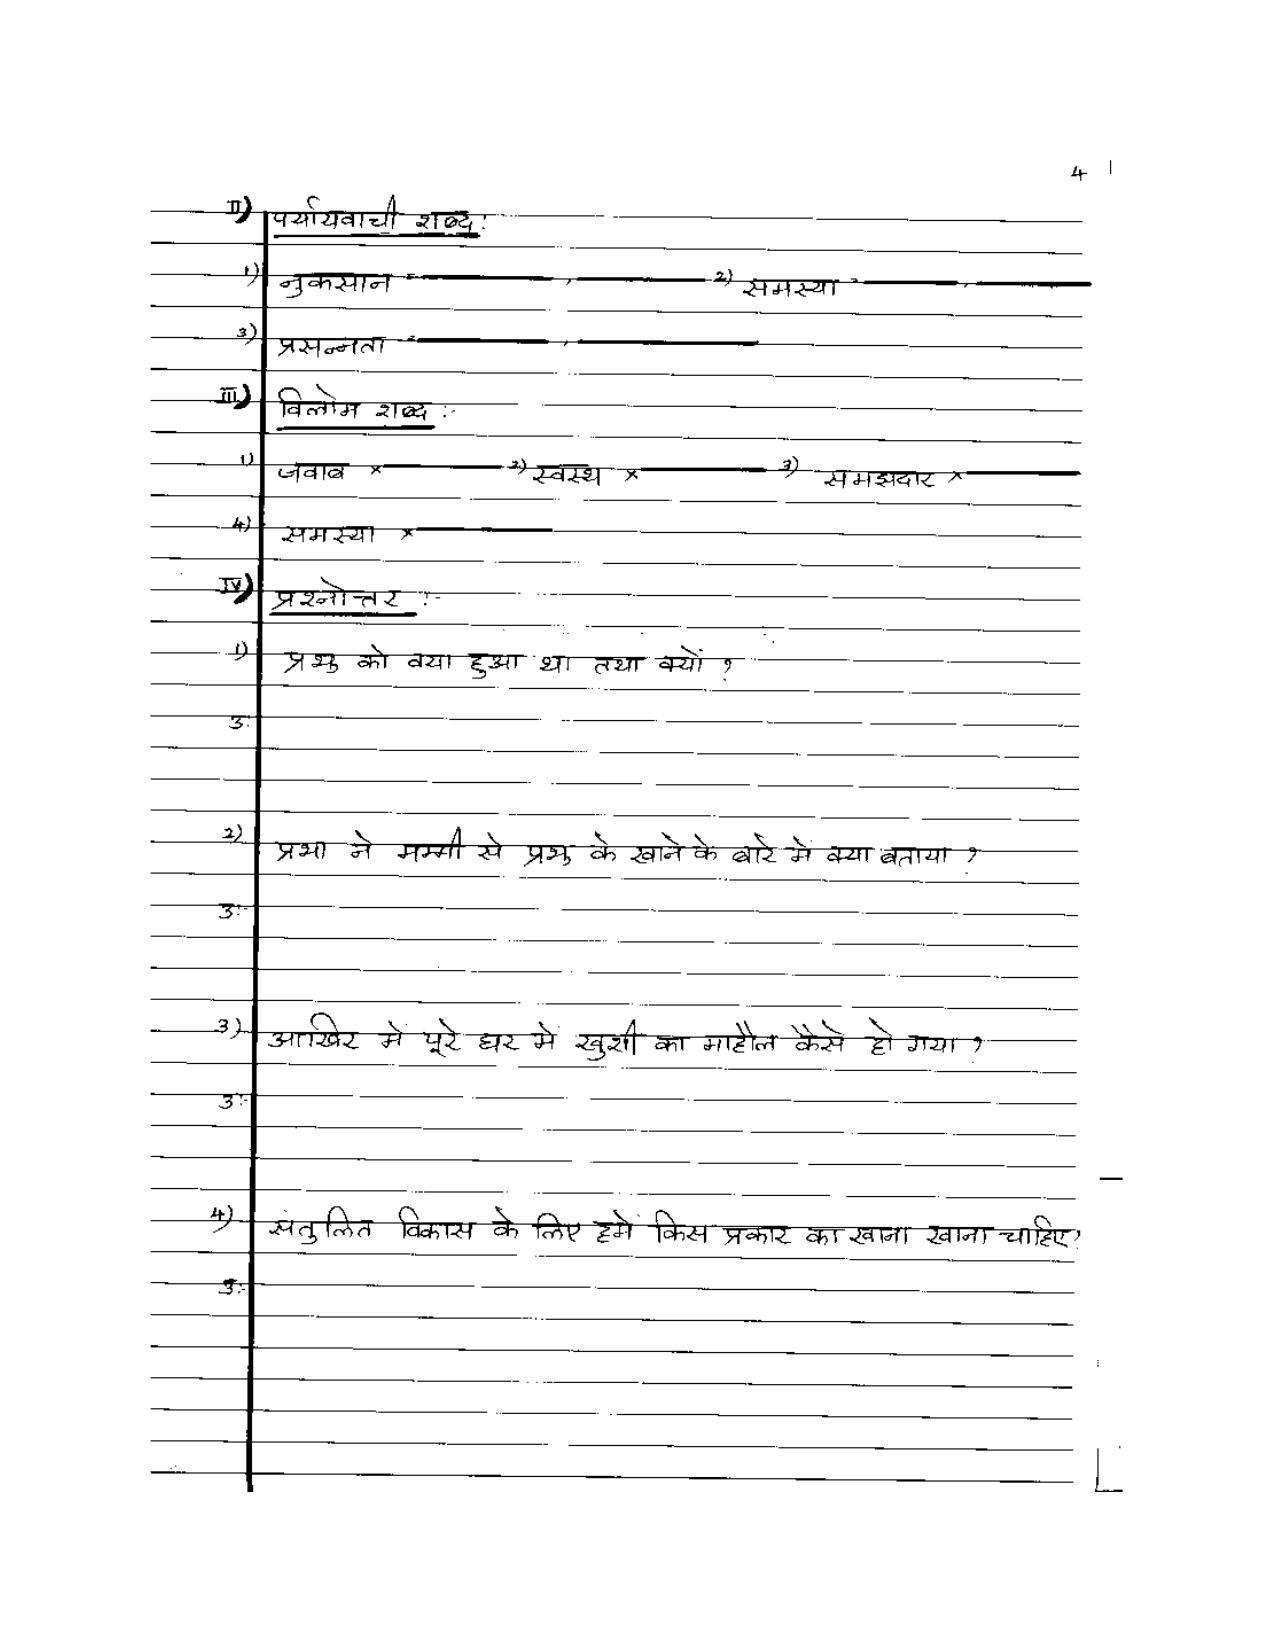 4
II) पर्यायवाची शब्द :
1) नुकसान - , 2) समस्या - ,
3) प्रसन्नता - ,
III) विलोम शब्द :-
1) जवाब × 2) स्वस्थ × 3) समझदार ×
4) समस्या ×
IV) प्रश्नोत्तर :-
1) प्रभु को क्या हुआ था तथा क्यों ?
उ:
2) प्रभा ने मम्मी से प्रभु के खाने के बारे में क्या बताया ?
उ:-
3) आखिर में पूरे घर में खुशी का माहौल कैसे हो गया ?
उ:-
4) संतुलित विकास के लिए हमें किस प्रकार का खाना खाना चाहिए?
उ:-